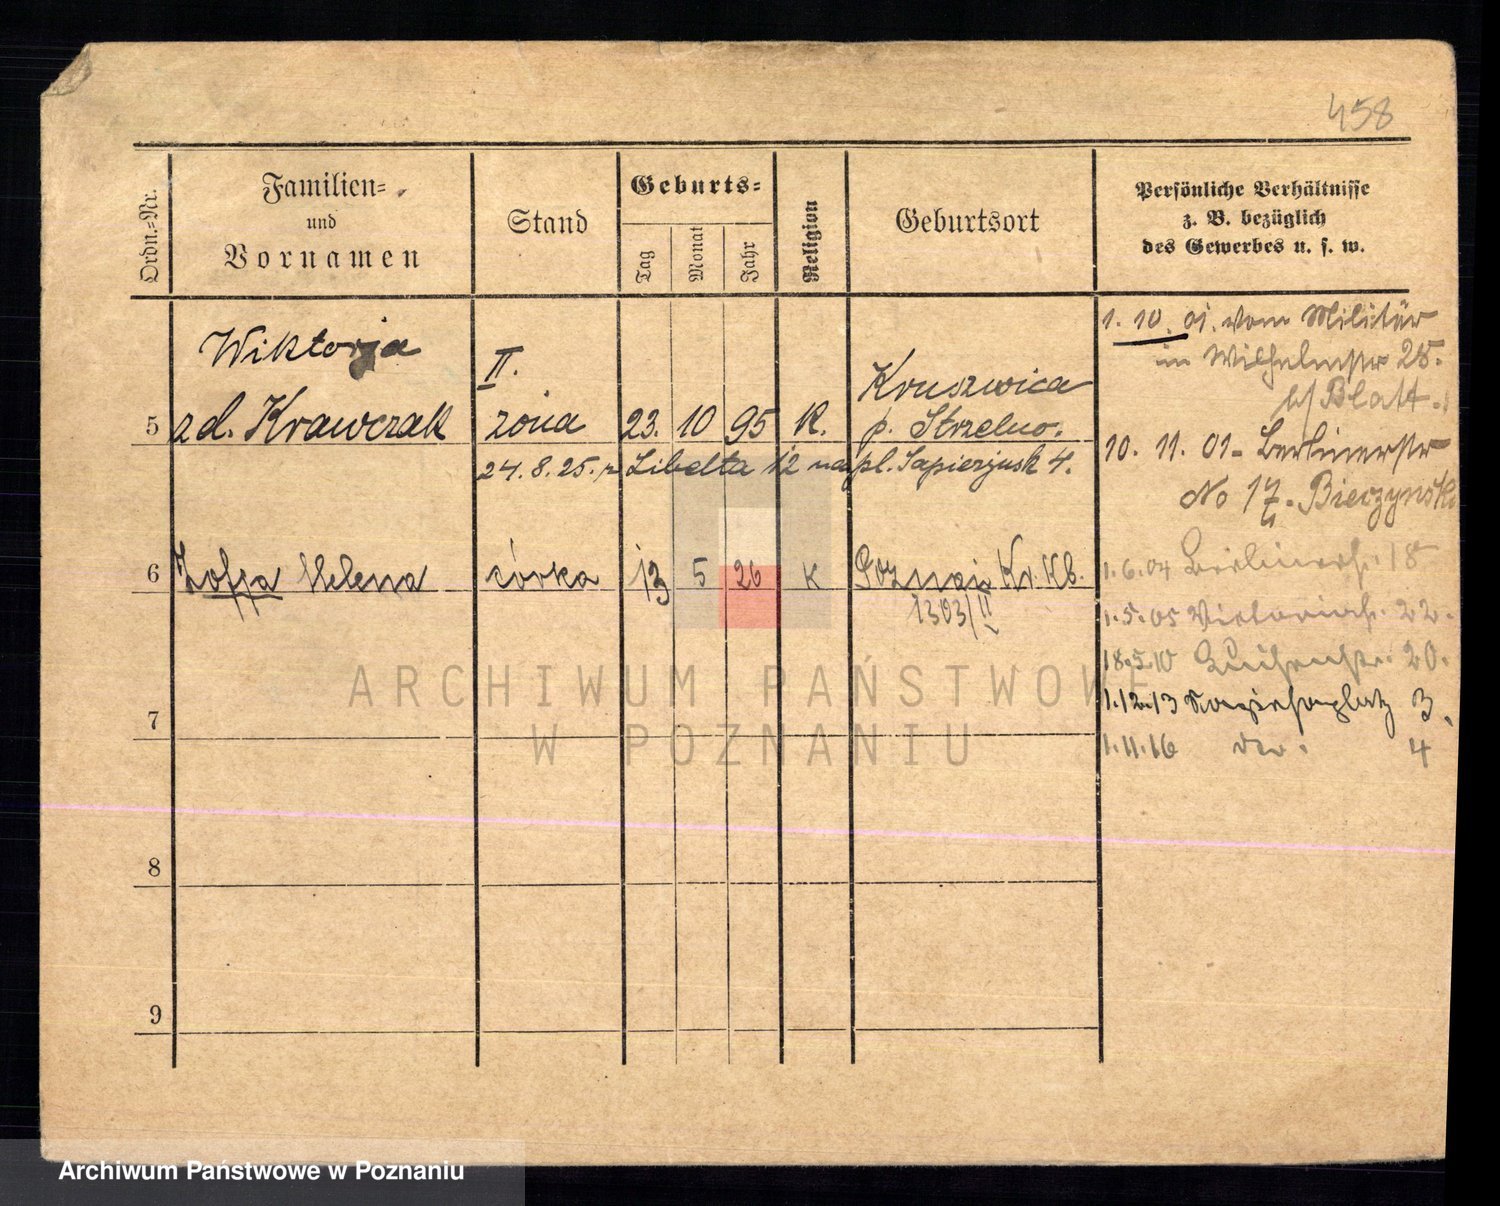 458
Ordn.-Nr.
Familien-
und
Vornamen
Stand
Geburts-
Tag
Monat
Jahr
Religion
Geburtsort
Persönliche Verhältnisse
z. B. bezüglich
des Gewerbes u. s. w.
Wiktorja
5 zd. Krawczak
II.
żona 23. 10 95 K.
Kruszwica
p. Strzelno.
24.8.25. z Libelta 12 na pl. Sapieżyńsk 4.
6 Zofja Helena córka 13 5 26 K Poznań Kr. Kb.
1303/II
7
8
9
1. 10. 01. vom Militär
in Wilhelmstr 25.
b/ Blatt.
10. 11. 01. Berlinerstr
No 17. Bieczynski
1.6.04 Berlinerstr. 18
1.5.05 Victoriastr. 22.
18.5.10 20.
1.12.13 3.
1.11.16 4
ARCHIWUM PAŃSTWOWE
W POZNANIU
Archiwum Państwowe w Poznaniu